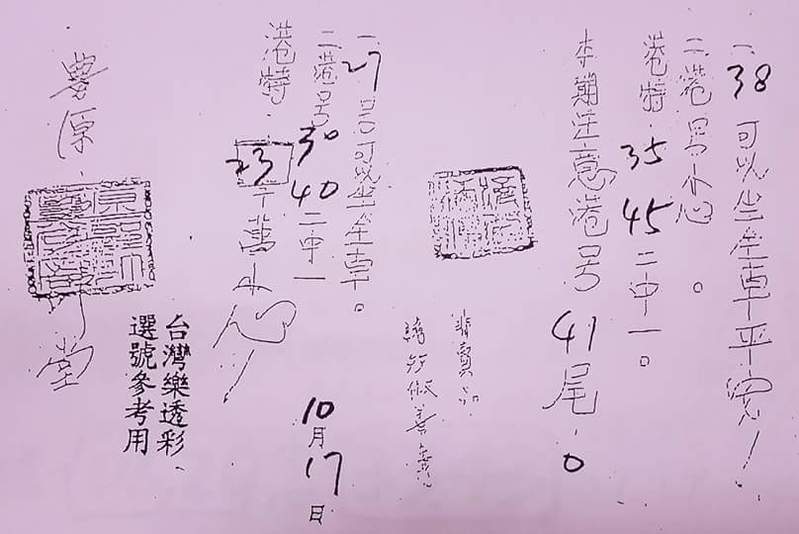 一、38可以坐全車平寬！
二、港号小心。
港特 35 45 二中一。
本期注意港号 41 尾.0
非賣品
10月17日
一、27号可以坐全車。
二港号 30 40 二中一
港特 23 千萬小心
台灣樂透彩、
選號參考用
豐原、
堂